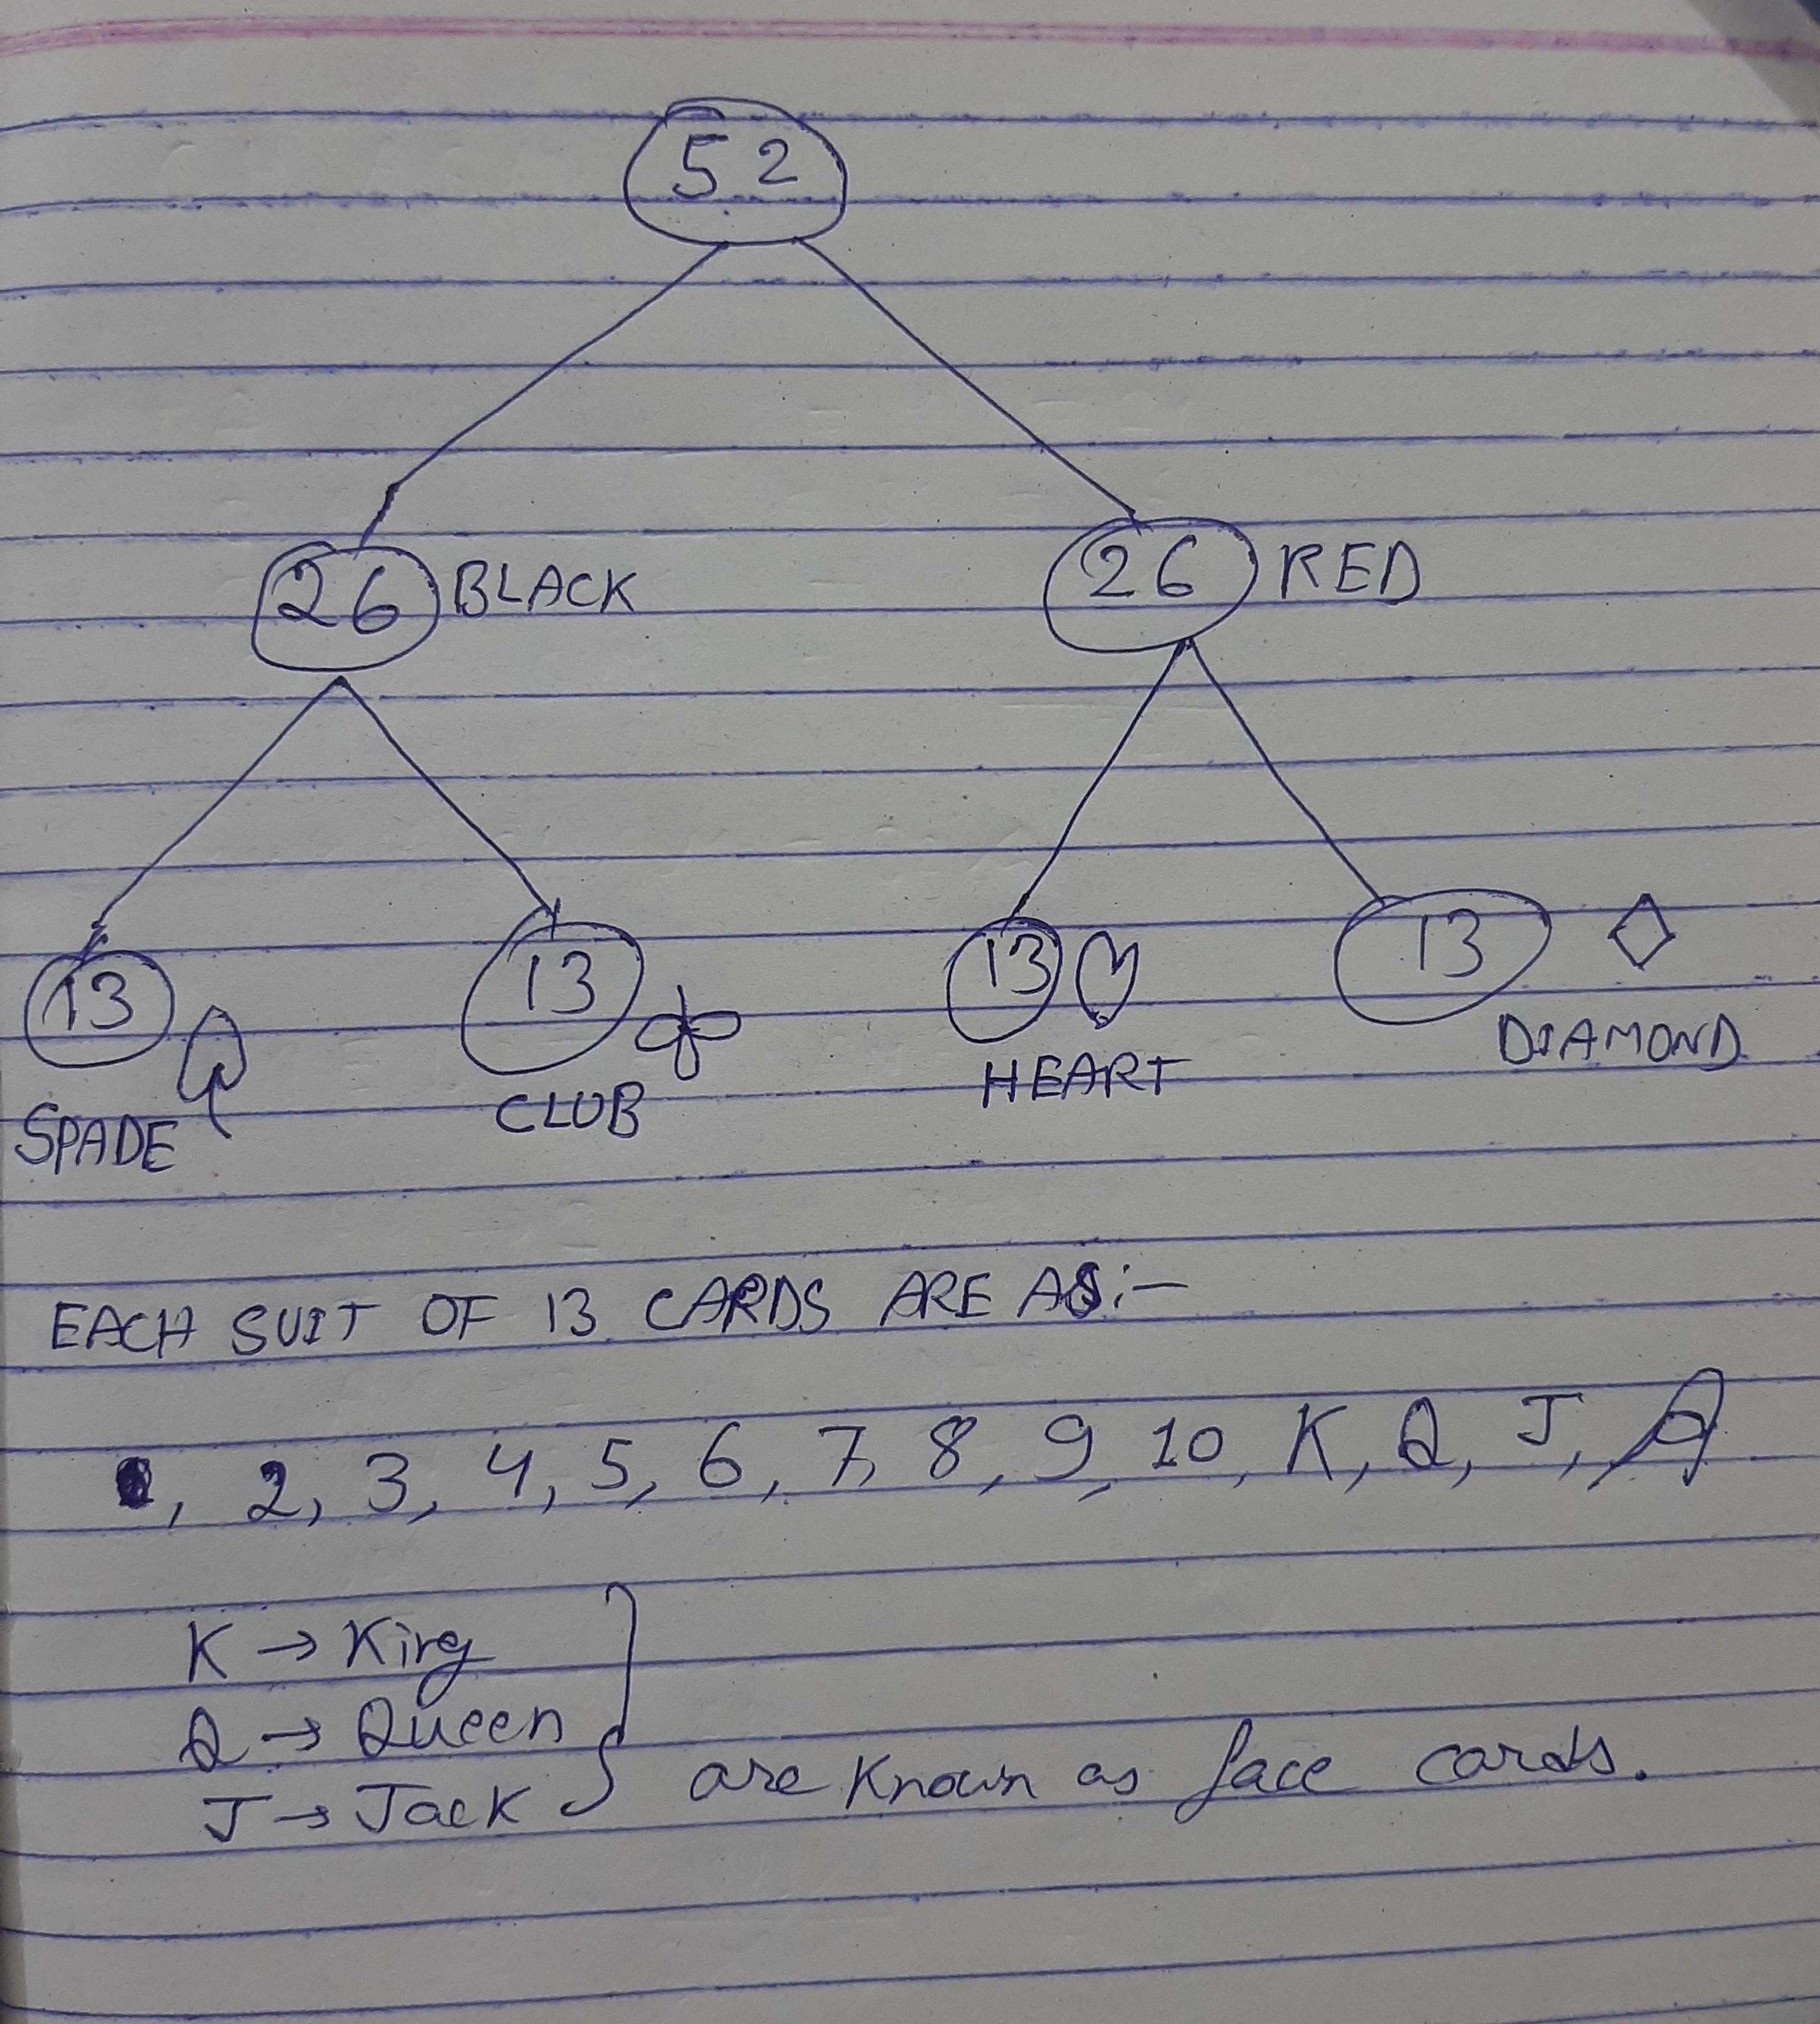 52
26 BLACK
26 RED
13
13
13
13
SPADE
CLUB
HEART
DIAMOND
EACH SUIT OF 13 CARDS ARE AS:-
, 2, 3, 4, 5, 6, 7, 8, 9, 10, K, Q, J,
K → King
Q → Queen
J → Jack } are known as face cards.